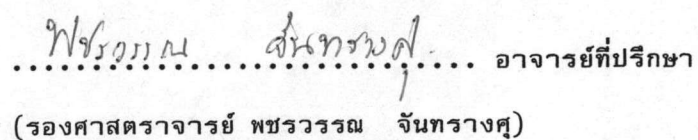 พชรวรรณ จันทรางศุ อาจารย์ที่ปรึกษา
(รองศาสตราจารย์ พชรวรรณ จันทรางศุ)